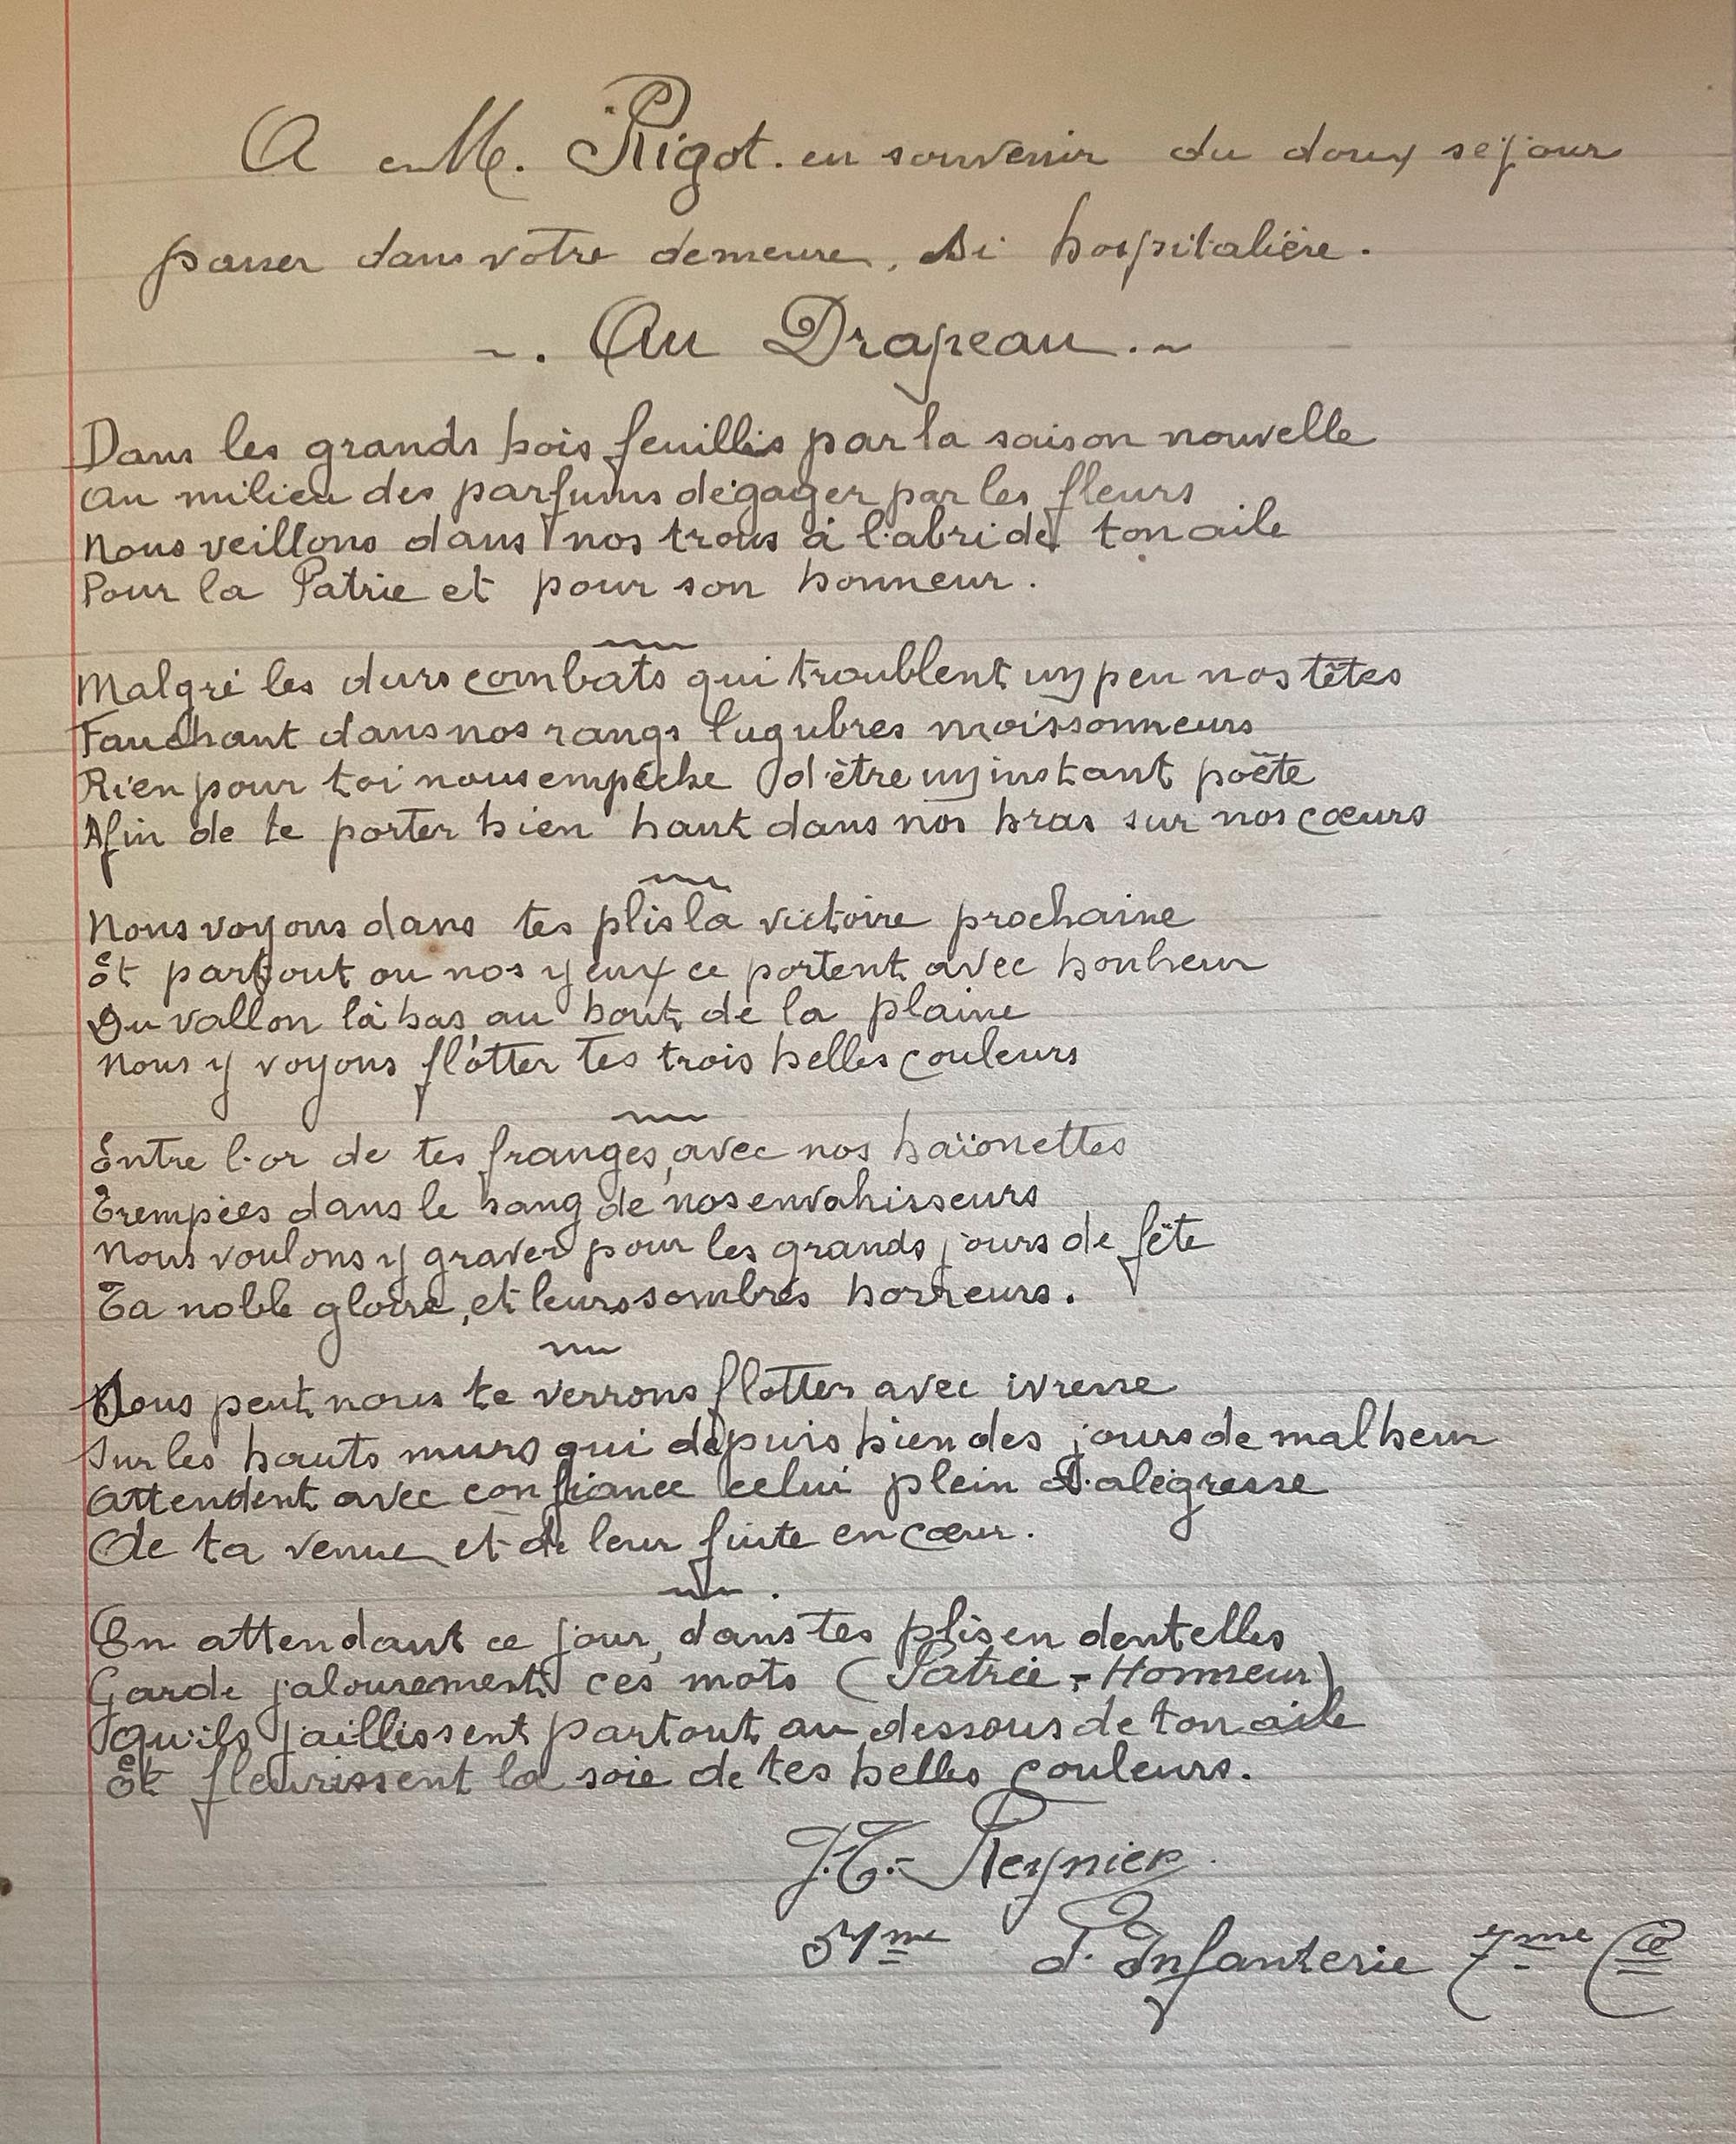 A M. Rigot. en souvenir du doux séjour
passer dans votre demeure, si hospitalière.
~. Au Drapeau. ~
Dans les grands bois feuillis par la saison nouvelle
au milieu des parfums dégager par les fleurs
Nous veillons dans nos trous à l'abri de ton aile
Pour la Patrie et pour son honneur.
Malgré les durs combats qui troublent un peu nos têtes
Fauchant dans nos rangs lugubres moissonneurs
Rien pour toi nous empêche d'être un instant poëte
Afin de te porter bien haut dans nos bras sur nos cœurs
Nous voyons dans tes plis la victoire prochaine
Et partout ou nos yeux ce portent avec bonheur
Du vallon là bas, au bout de la plaine
Nous y voyons flotter tes trois belles couleurs
Entre l'or de tes franges, avec nos baïonettes
Trempées dans le sang de nos envahisseurs
Nous voulons y graver pour les grands jours de fête
Ta noble gloire, et leurs sombres horreurs.
Sous peut nous te verrons flotter avec ivresse
Sur les hauts murs qui depuis bien des jours de malheur
Attendent avec confiance celui plein d'alégresse
De ta venue et de leur fuite en cœur.
En attendant ce jour, dans tes plis en dentelles
Garde jalousement ces mots (Patrie - Honneur)
qu'ils jaillissent partout au dessous de ton aile
Et fleurissent la soie de tes belles couleurs.
Reynier
me d'Infanterie 7me Cie